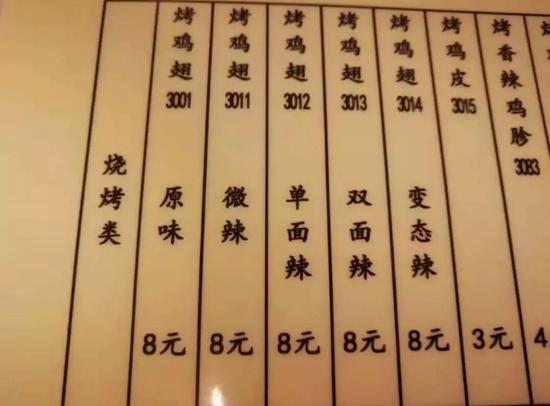 烧烤类
烤鸡翅
3001
原味
8元
烤鸡翅
3011
微辣
8元
烤鸡翅
3012
单面辣
8元
烤鸡翅
3013
双面辣
8元
烤鸡翅
3014
变态辣
8元
烤鸡皮
3015
3元
烤香辣鸡胗
3083
4